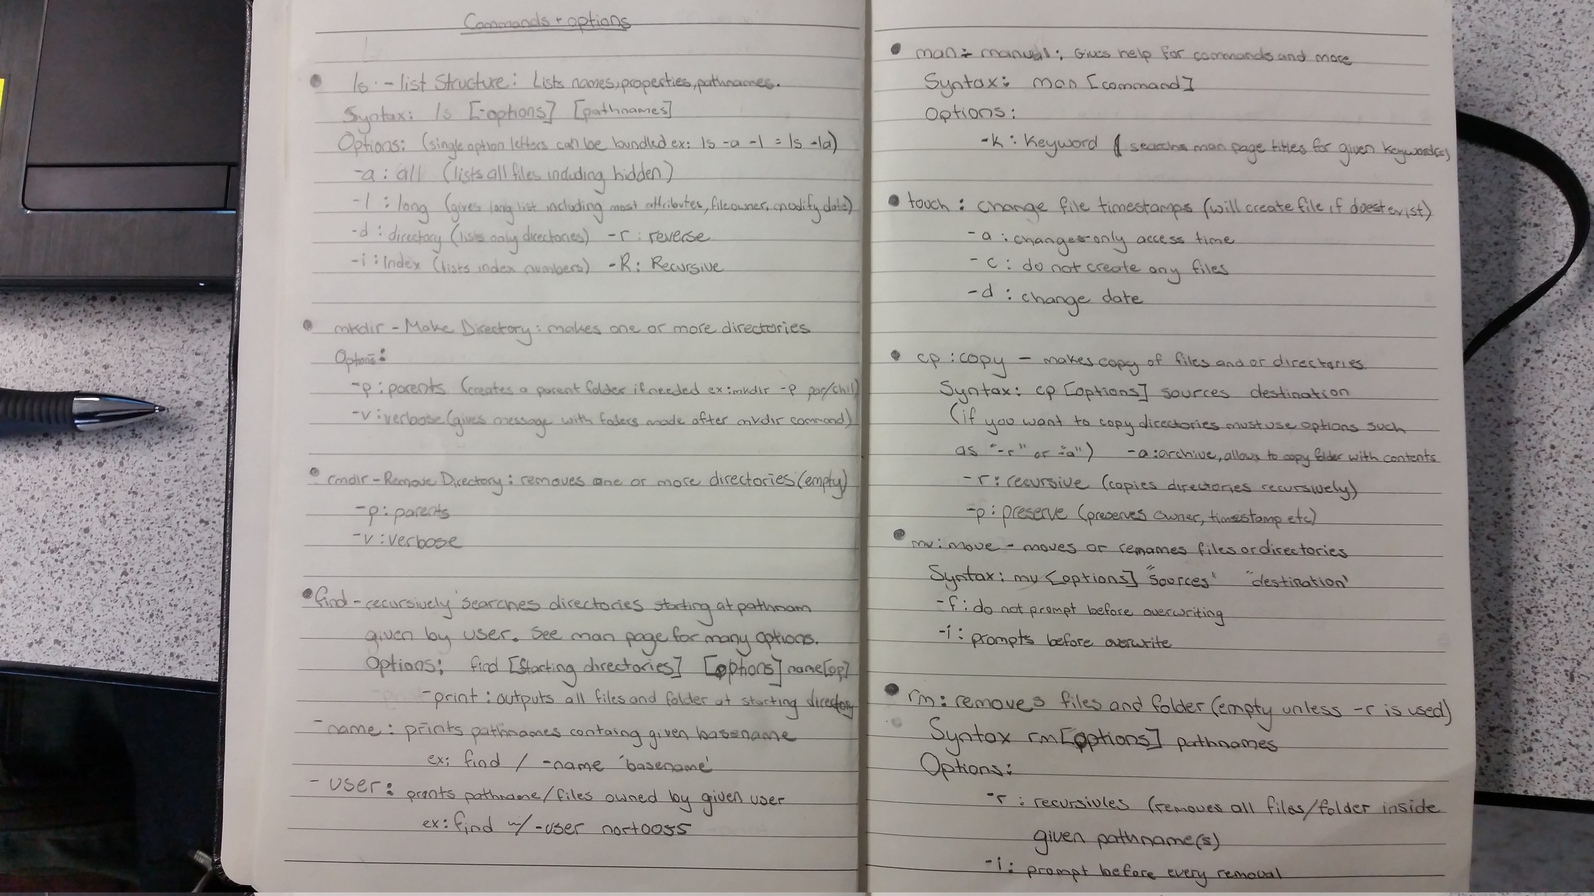 Commands + options
ls - list Structure: Lists names, properties, pathnames.
Syntax: ls [-options] [pathnames]
Options: (single option letters can be bundled ex: ls -a -l = ls -la)
-a : all (lists all files including hidden)
-l : long (gives long list including most attributes, file owner, modify date)
-d : directory (lists only directories) -r : reverse
-i : Index (lists index numbers) -R : Recursive
mkdir - Make Directory : makes one or more directories
Options:
-p : parents (creates a parent folder if needed ex: mkdir -p par/chil)
-v : verbose (gives message with folders made after mkdir command)
rmdir - Remove Directory : removes one or more directories (empty)
-p : parents
-v : verbose
find - recursively searches directories starting at pathnam
given by user. See man page for many options.
Options; find [starting directories] [options] name[op]
-print : outputs all files and folder at starting directory
-name : prints pathnames containg given basename
ex: find / -name 'basename'
- user : prints pathname/files owned by given user
ex: find ~/ -user nort0055
man : manual ; Gives help for commands and more
Syntax : man [command]
Options :
-k : Keyword searches man page titles for given keyword(s)
touch : change file timestamps (will create file if doesnt exist)
-a : changes only access time
-c : do not create any files
-d : change date
cp : copy - makes copy of files and or directories
Syntax : cp [options] sources destination
(if you want to copy directories must use options such
as "-r" or "-a") -a : archive, allows to copy folder with contents
-r : recursive (copies directories recursively)
-p : preserve (preserves owner, timestamp etc)
mv : move - moves or renames files or directories
Syntax : mv [options] "sources' "destination'
-f : do not prompt before overwriting
-i : prompts before overwrite
rm : removes files and folder (empty unless -r is used)
Syntax rm [options] pathnames
Options :
-r : recursivles (removes all files/folder inside
given pathname(s)
-i : prompt before every removal